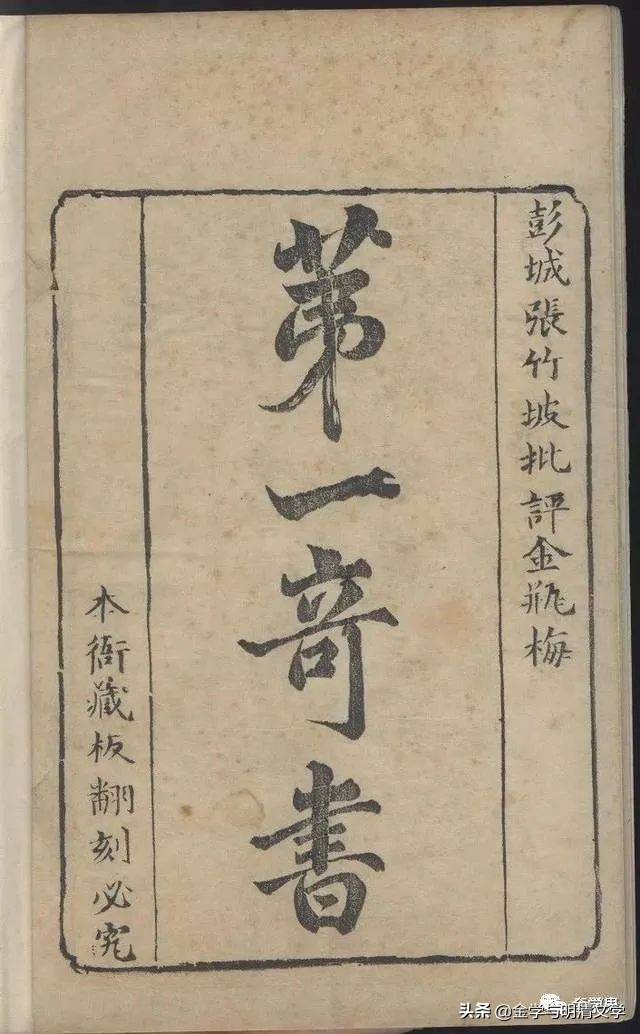 彭城張竹坡批評金瓶梅
第一奇書
本衙藏板翻刻必究
奋学男
头条 @金学与明清文学